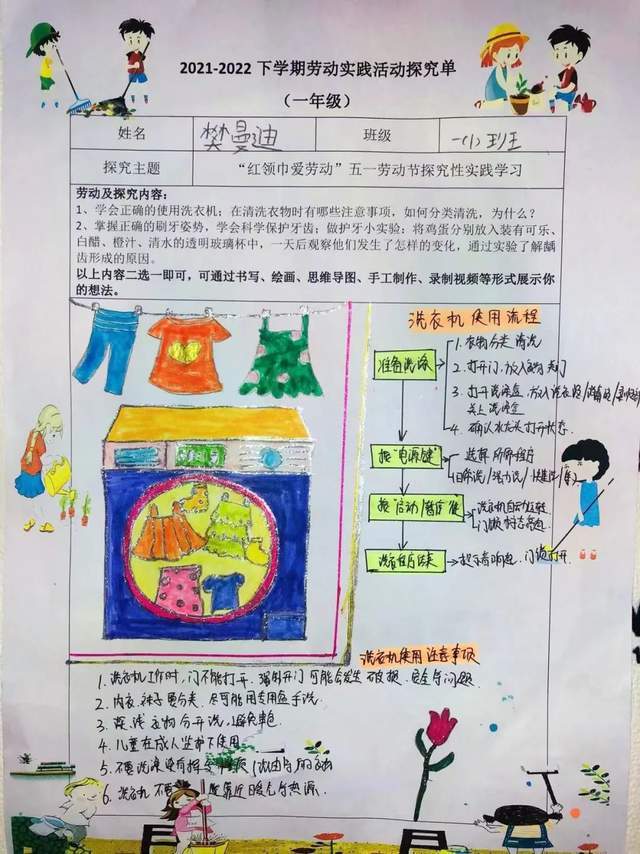 2021-2022 下学期劳动实践活动探究单
（一年级）
姓名 樊曼迪 班级 一(1)班
探究主题 “红领巾爱劳动”五一劳动节探究性实践学习
劳动及探究内容：
1、学会正确的使用洗衣机；在清洗衣物时有哪些注意事项，如何分类清洗，为什么？
2、掌握正确的刷牙姿势，学会科学保护牙齿；做护牙小实验：将鸡蛋分别放入装有可乐、
白醋、橙汁、清水的透明玻璃杯中，一天后观察他们发生了怎样的变化，通过实验了解龋
齿形成的原因。
以上内容二选一即可，可通过书写、绘画、思维导图、手工制作、录制视频等形式展示你
的想法。
洗衣机使用流程
准备洗涤
1. 衣物分类清洗
2. 打开门，放入衣物 关门
3. 打开洗涤盒，放入洗衣液/消毒液/
关上洗涤盒
4. 确认水龙头打开状态.
按“电源键”
选择所需程序
日常洗/强力洗/快速洗/
按“启动/暂停”键
洗衣机自动运转
洗衣程序结束
提示音响起，门锁打开.
洗衣机使用注意事项
1. 洗衣机工作时，门不能打开. 强制开门可能会发生破损、安全等问题.
2. 内衣、袜子要分类，尽可能用专用盆手洗.
3. 深、浅衣物分开洗，避免串色.
4. 儿童在成人监护下使用.
5. 不要洗涤
6. 洗衣机不要 靠近日晒充分热源.